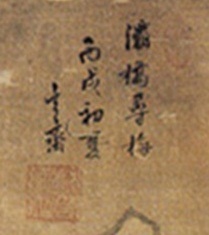 灞橋尋梅
丙戌初夏
玄齋